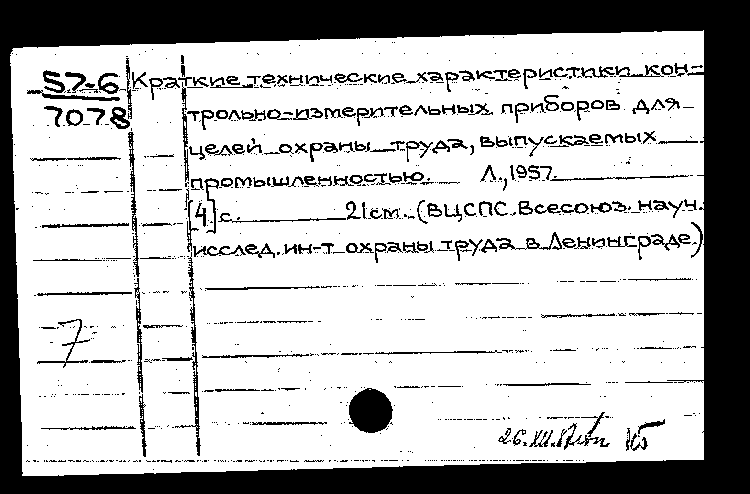 57-6 Краткие технические характеристики кон-
7078 трольно-измерительных приборов для
целей охраны труда, выпускаемых
промышленностью. Л., 1957.
[4] с. 21 см. (ВЦСПС. Всесоюз. науч.
исслед. ин-т охраны труда в Ленинграде.)
7
26.XII.